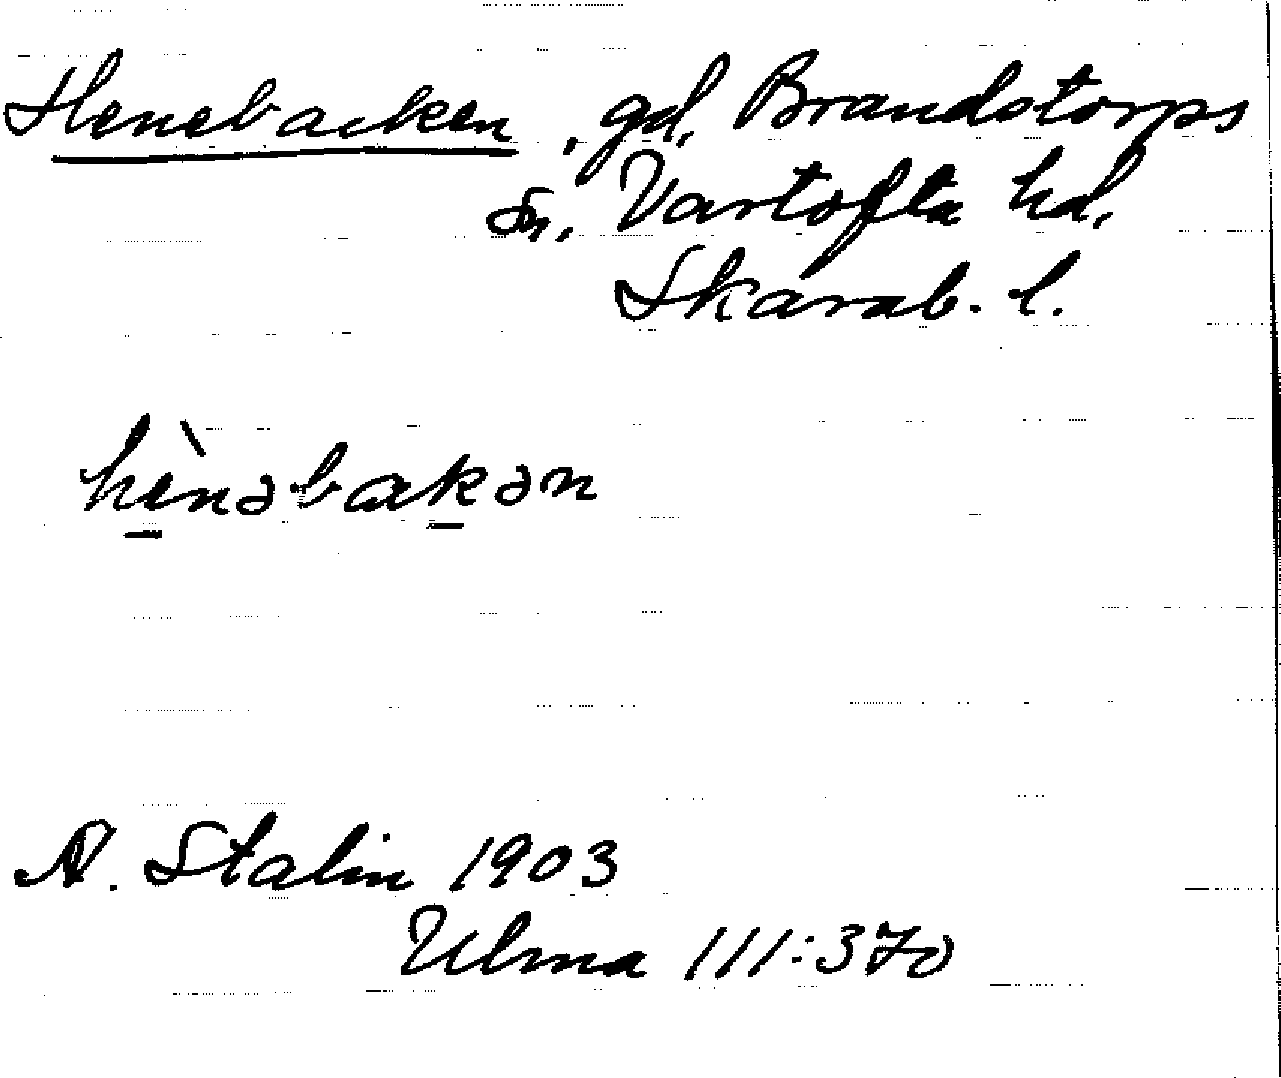 Henebacken, gd, Brandstorps
sn, Vartofta hd,
Skarab. l.
hènəbakən
N. Stalin 1903
Ulma 111:370